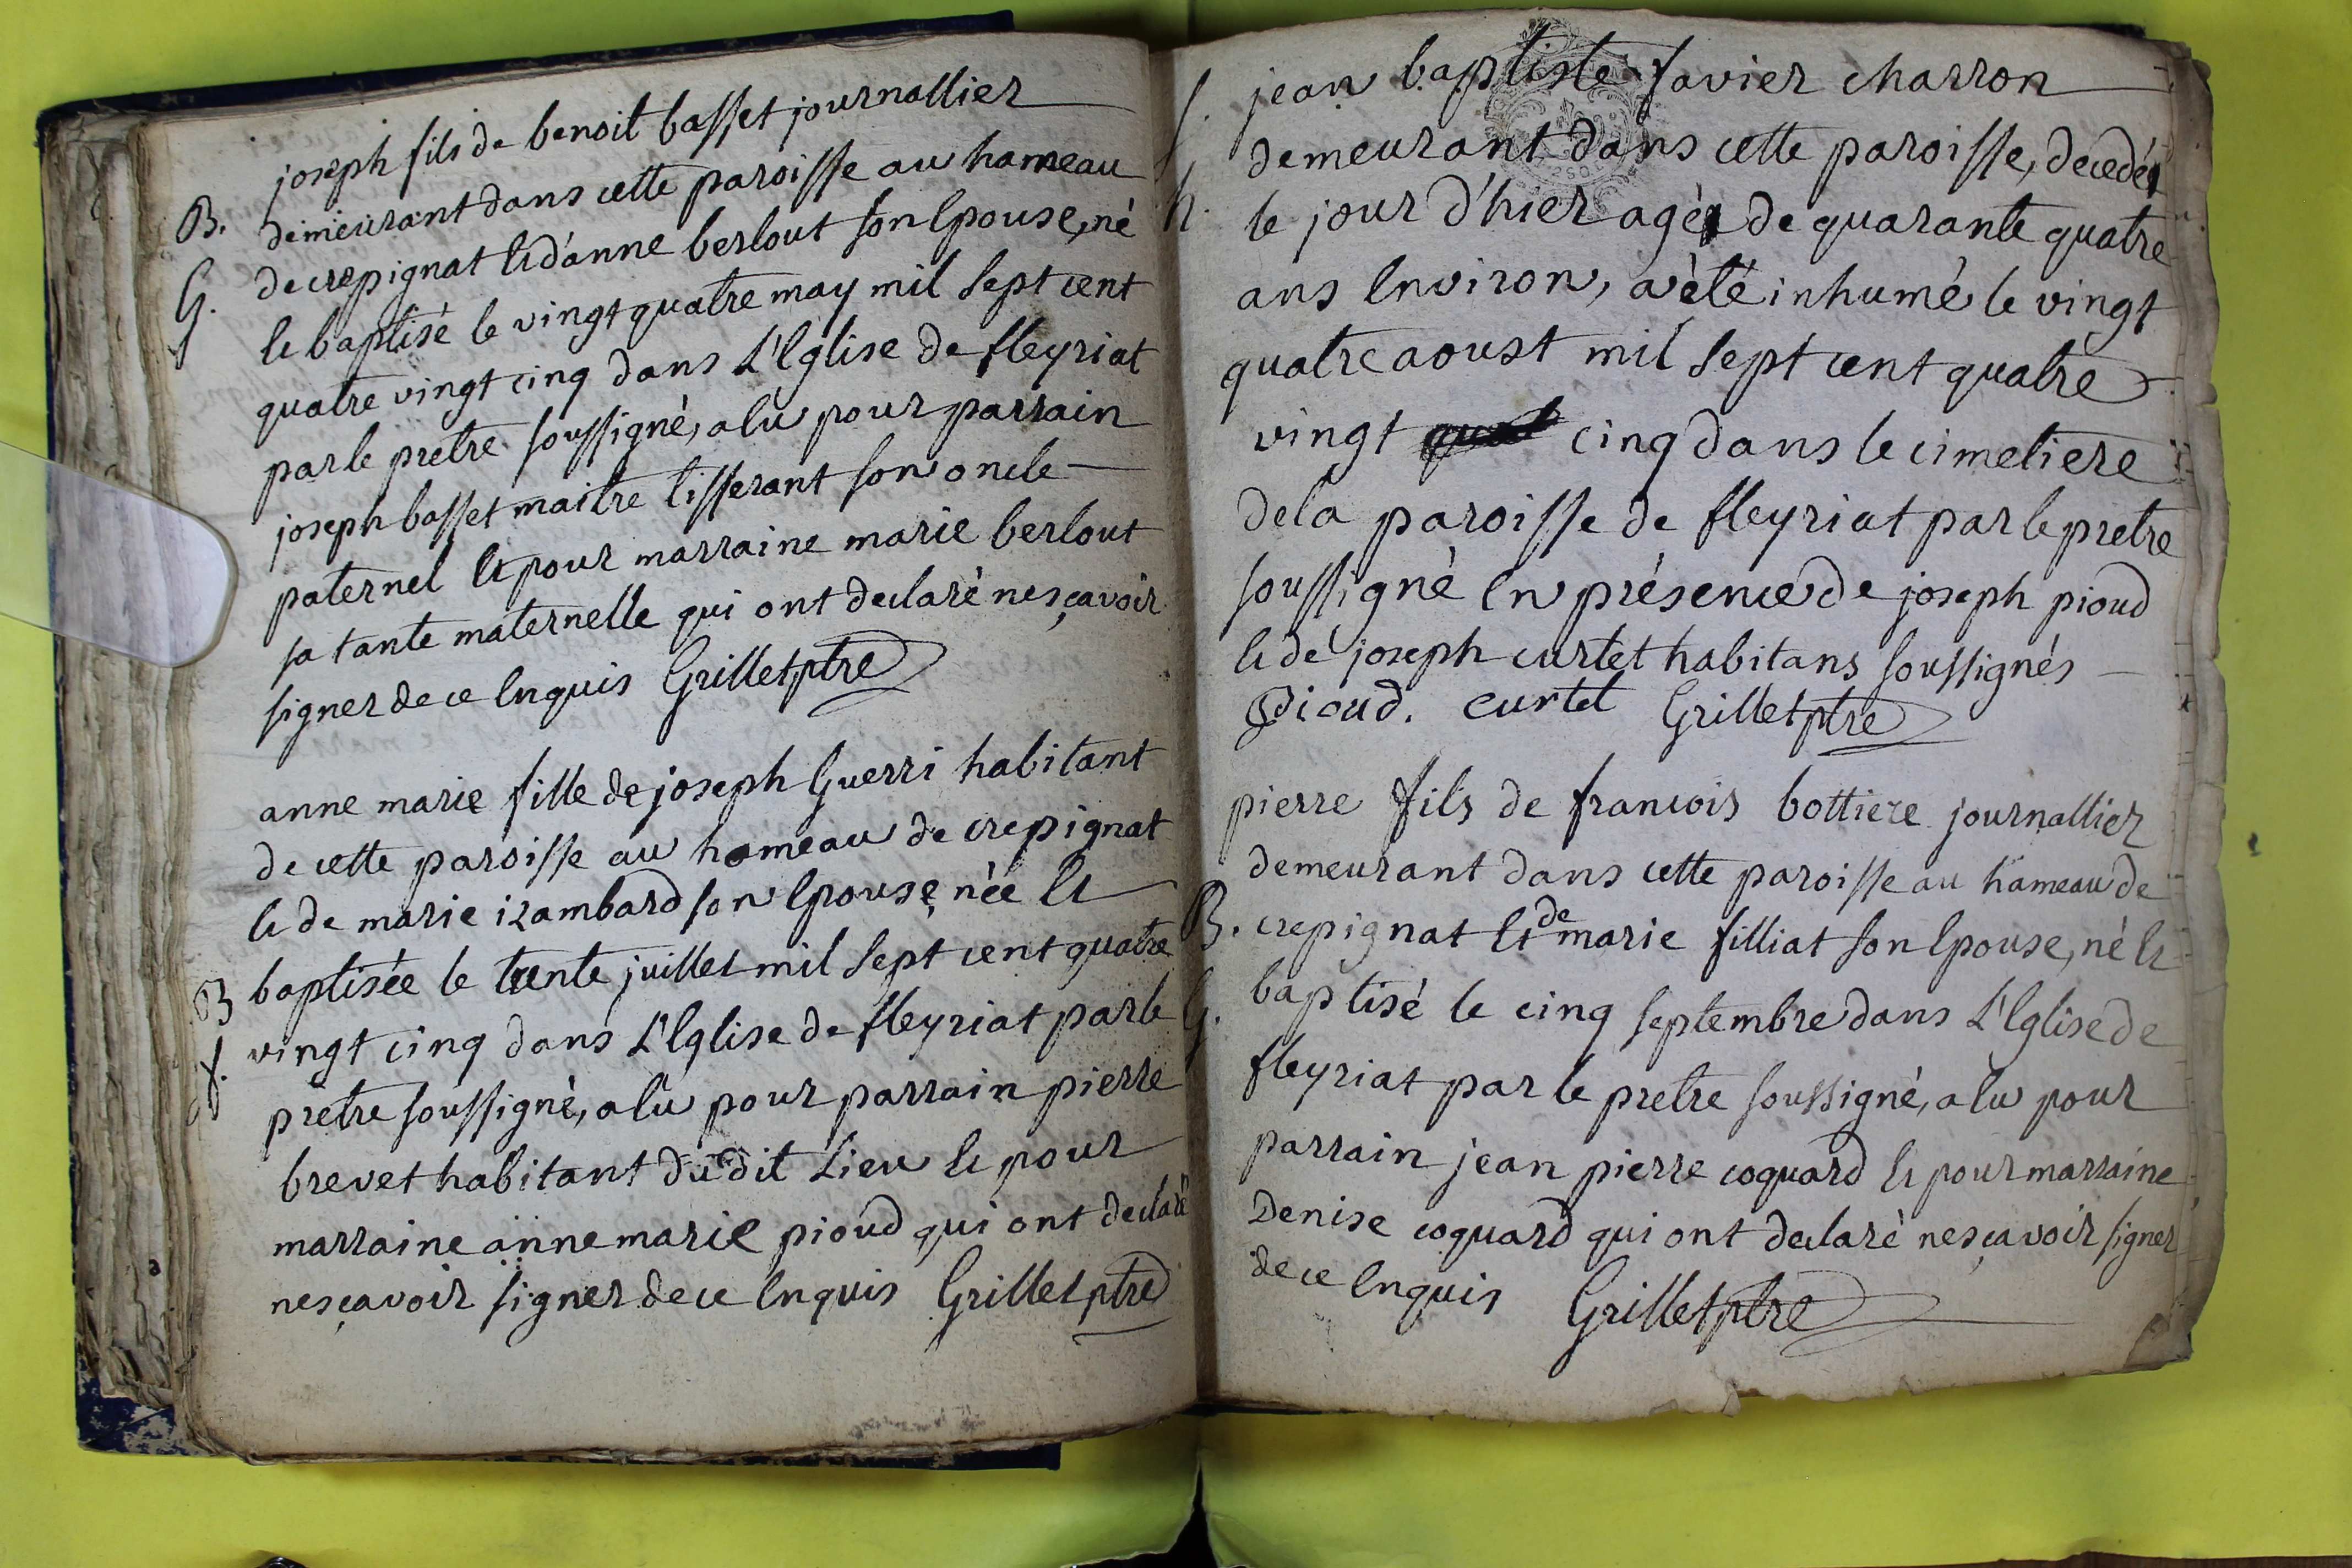 joseph fils de benoit basset journallier
B. demeurant dans cette paroisse au hameau
de crepignat et d'anne berlout son epouse, né
G. et baptisé le vingt quatre may mil sept cent
quatre vingt cinq dans L'Eglise de fleyriat
par le pretre soussigné, a eu pour parrain
joseph basset maitre tisserant son oncle
paternel et pour marraine marie berlout
sa tante maternelle qui ont declaré ne sçavoir
signer de ce enquis Grillet ptre
anne marie fille de joseph Guerri habitant
de cette paroisse au hameau de crepignat
et de marie izambard son epouse, née et
B baptisée le trente juillet mil sept cent quatre
f. vingt cinq dans L'Eglise de fleyriat par le
pretre soussigné, a eu pour parrain pierre
brevet habitant du dit Lieu et pour
marraine anne marie pioud qui ont declaré
ne sçavoir signer de ce enquis Grillet ptre
S. jean baptiste favier charron
G. demeurant dans cette paroisse, decedé
h. le jour d'hier agé de quarante quatre
ans environ, a été inhumé le vingt
quatre aoust mil sept cent quatre
vingt cinq dans le cimetiere
de la paroisse de fleyriat par le pretre
soussigné en présence de joseph pioud
et de joseph curtet habitans soussignés
Pioud. Curtet Grillet ptre
pierre fils de francois bottiere journallier
demeurant dans cette paroisse au hameau de
B. crepignat et de marie filliat son epouse, né et
G. baptisé le cinq septembre dans L'Eglise de
fleyriat par le pretre soussigné, a eu pour
parrain jean pierre coquard et pour marraine
Denise coquard qui ont declaré ne sçavoir signer
de ce enquis Grillet ptre